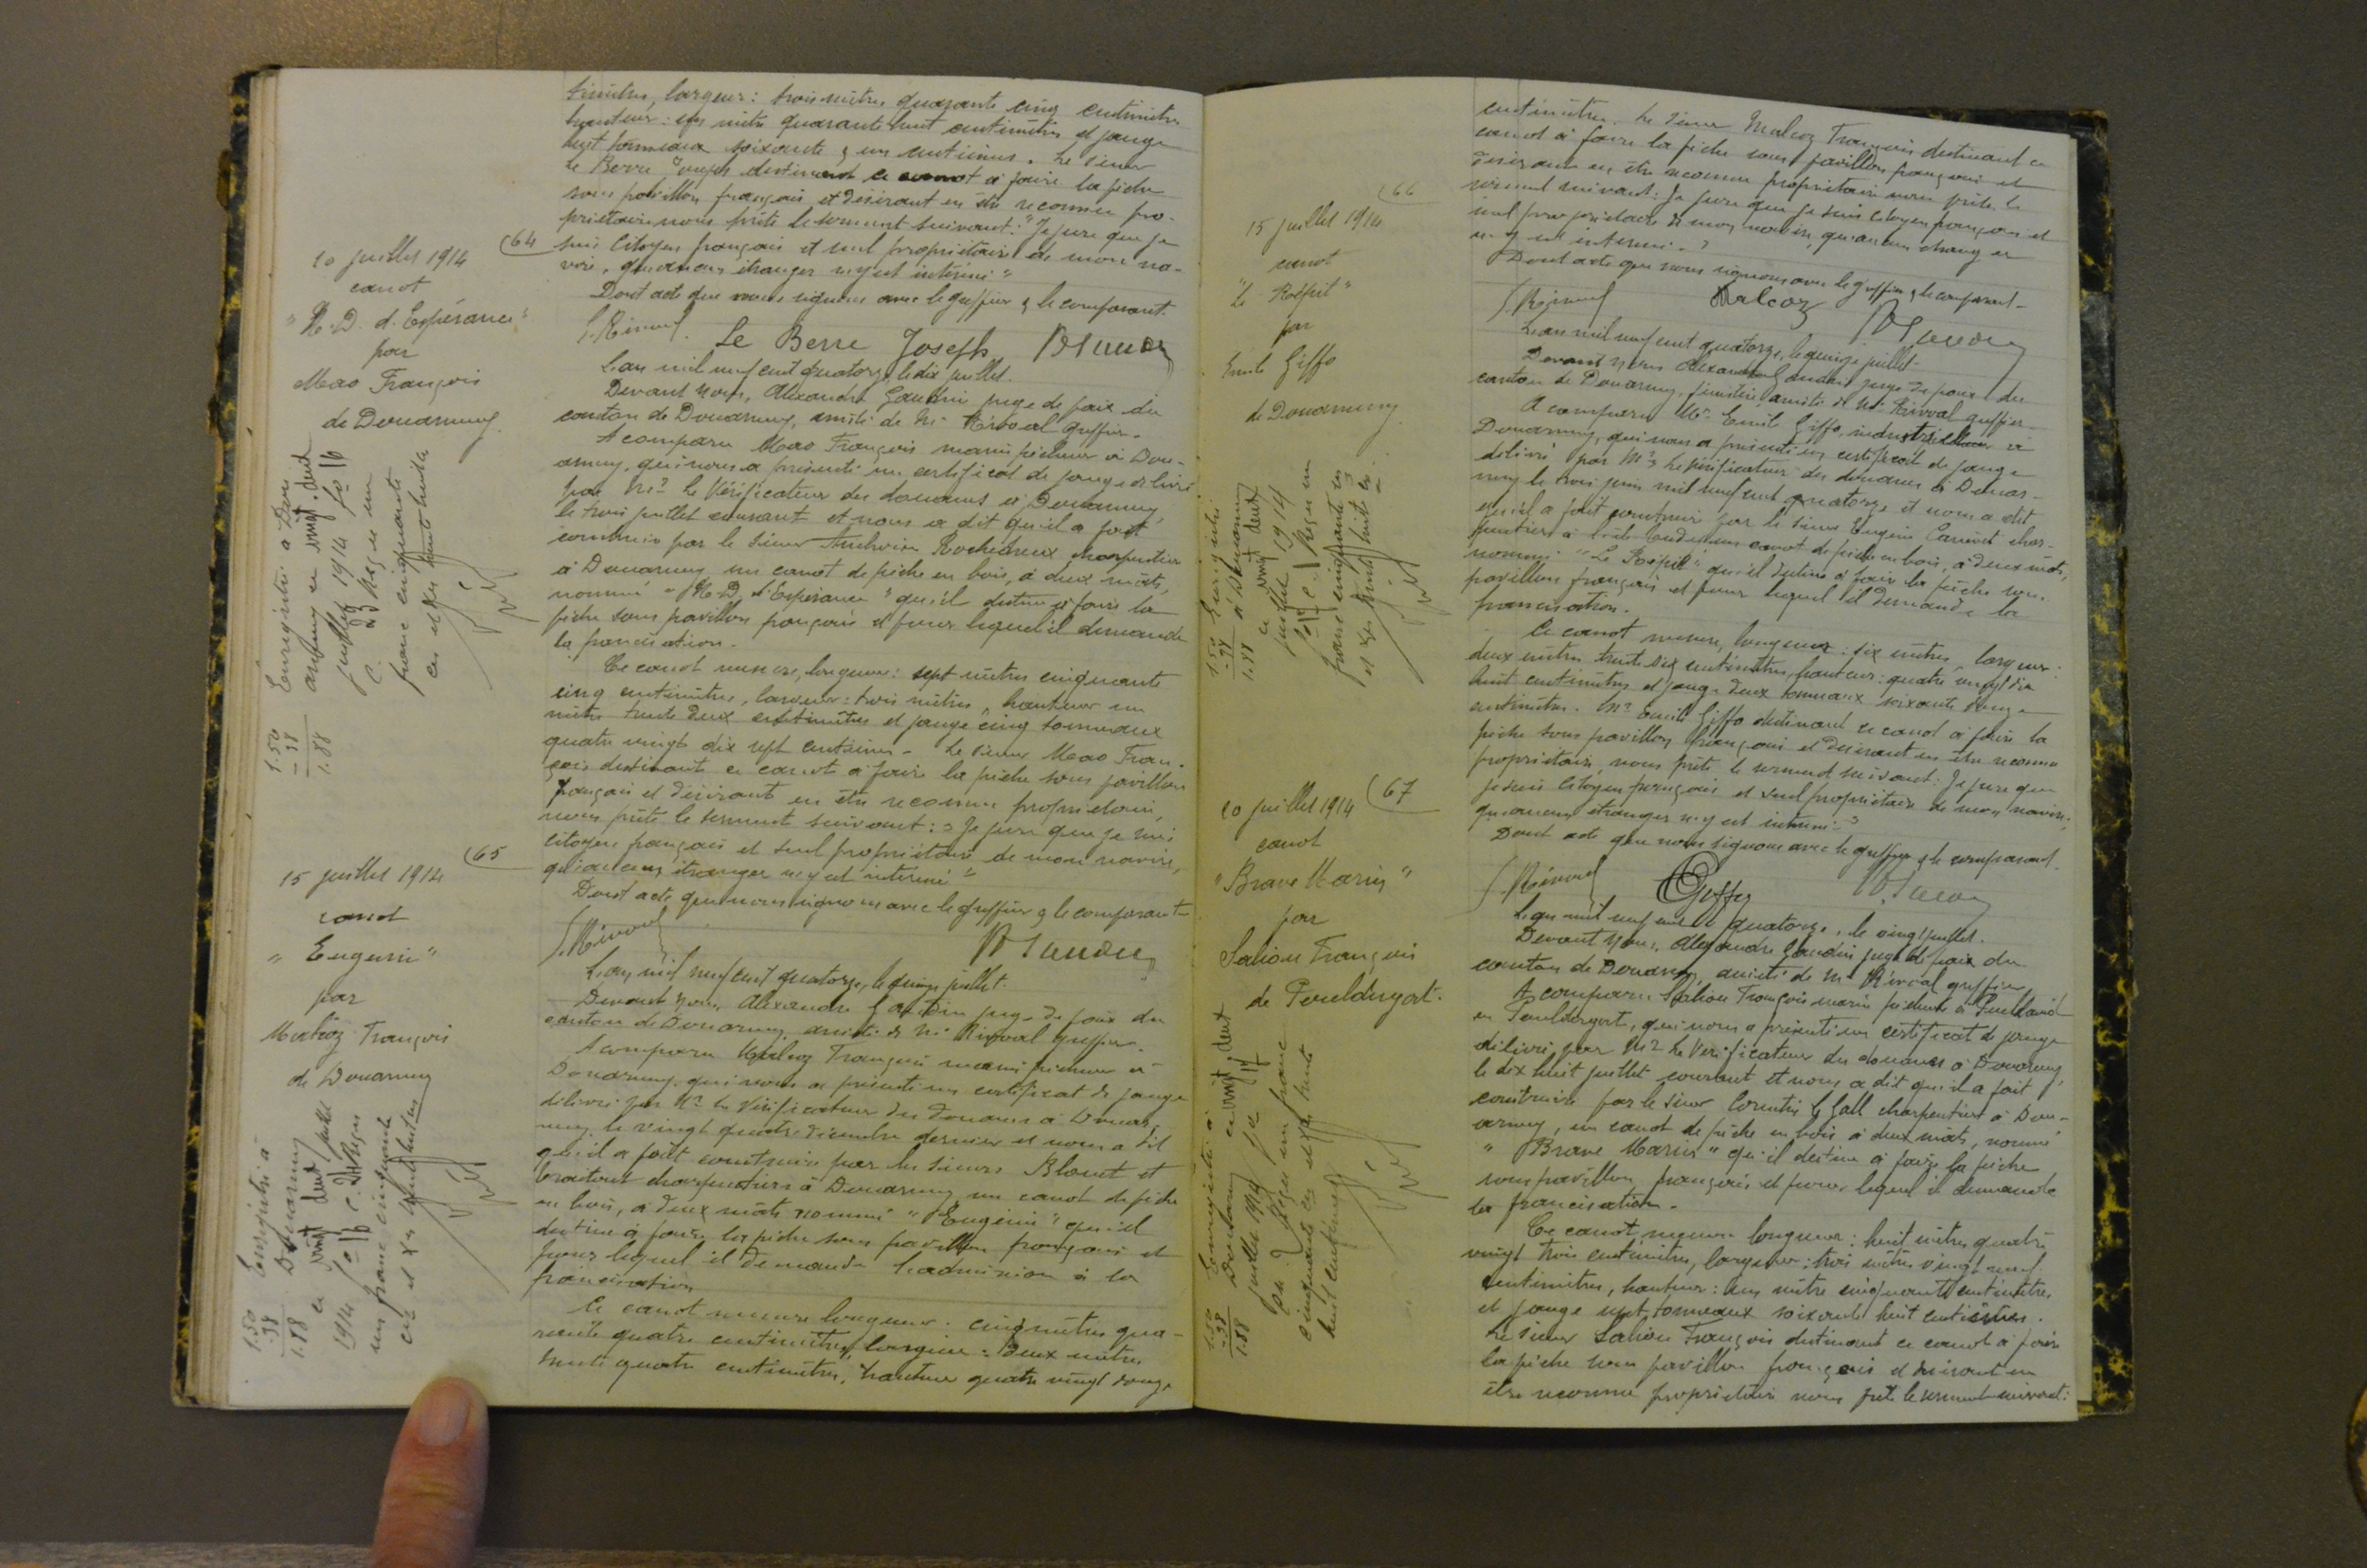 timètres, largeur : trois mètres quarante cinq centimètres
hauteur : un mètre quarante huit centimètres et jauge
huit tonneaux soixante & un centièmes. Le sieur
Le Berre Joseph destinant ce canot à faire la pêche
sous pavillon français et désirant en être reconnu pro-
priétaire nous prête le serment suivant : "Je jure que je
suis citoyen français et seul propriétaire de mon na-
vire, qu'aucun étranger n'y est intéressé"
Dont acte que nous signons avec le greffier & le comparant.
Le Berre Joseph
64
10 juillet 1914
canot
"N. D. d'Espérance"
par
Mao François
de Douarnenez
L'an mil neuf cent quatorze, le dix juillet.
Devant nous, Alexandre Gaudin juge de paix du
canton de Douarnenez, assisté de Me Rivoal greffier.
A comparu Mao François marin pêcheur à Dou-
arnenez, qui nous a présenté un certificat de jauge délivré
par Mr Le Vérificateur des douanes à Douarnenez,
le trois juillet courant et nous a dit qu'il a fait
construire par le sieur charpentier
à Douarnenez un canot de pêche en bois, à deux mâts,
nommé "N. D. d'Espérance" qu'il destine à faire la
pêche sous pavillon français et pour lequel il demande
la francisation.
Ce canot mesure, longueur : sept mètres cinquante
cinq centimètres, largeur : trois mètres, hauteur un
mètre trente deux centimètres et jauge cinq tonneaux
quatre vingt dix sept centièmes. Le sieur Mao Fran-
çois destinant ce canot à faire la pêche sous pavillon
français et désirant en être reconnu propriétaire,
nous prête le serment suivant : "Je jure que je suis
citoyen français et seul propriétaire de mon navire,
qu'aucun étranger n'y est intéressé"
Dont acte que nous signons avec le greffier & le comparant
Enregistré à Dou
arnenez ce vingt deux
juillet 1914 fo 16
c. 23 Reçu un
franc cinquante
1.50
-.38
1.88
65
15 juillet 1914
canot
"Eugénie"
par
Malcoz François
de Douarnenez
L'an mil neuf cent quatorze, le quinze juillet.
Devant nous, Alexandre Gaudin juge de paix du
canton de Douarnenez, assisté de Me Rivoal greffier.
A comparu Malcoz François marin pêcheur à
Douarnenez, qui nous a présenté un certificat de jauge
délivré par Mr Le Vérificateur des douanes à Douar-
nenez le vingt quatre décembre dernier et nous a dit
qu'il a fait construire par les sieurs Blouet et
charpentiers à Douarnenez un canot de pêche
en bois, à deux mâts nommé "Eugénie" qu'il
destine à faire la pêche sous pavillon français et
pour lequel il demande l'admission à la
francisation
Ce canot mesure longueur : cinq mètres qua-
rante quatre centimètres, largeur : deux mètres
trente quatre centimètres, hauteur quatre vingt douze
Enregistré à
Douarnenez
ce vingt deux juillet
1914 fo 16 c. Reçu
un franc cinquante
1.50
.38
1.88
centimètres. Le sieur Malcoz François destinant ce
canot à faire la pêche sous pavillon français et
désirant en être reconnu propriétaire nous prête le
serment suivant : Je jure que je suis citoyen français et
seul propriétaire de mon navire, qu'aucun étranger
n'y est intéressé."
Dont acte que nous signons avec le greffier & le comparant.
Malcoz
66
15 juillet 1914
canot
"Le Répit"
par
Emile Giffo
de Douarnenez
L'an mil neuf cent quatorze, le quinze juillet.
Devant nous Alexandre Gaudin juge de paix du
canton de Douarnenez, Finistère assisté de Me Rivoal greffier.
A comparu Mr Emile Giffo, industriel à
Douarnenez, qui nous a présenté un certificat de jauge
délivré par Mr Le Vérificateur des douanes à Douar-
nenez le trois juin mil neuf cent quatorze et nous a dit
qu'il a fait construire par le sieur Eugène char-
pentier à un canot de pêche en bois, à deux mâts,
nommé "Le Répit" qu'il destine à faire la pêche sous
pavillon français et pour lequel il demande la
francisation.
Ce canot mesure, longueur : six mètres, largeur :
deux mètres trente six centimètres, hauteur : quatre vingt dix
huit centimètres et jauge deux tonneaux soixante douze
centimètres. Mr Emile Giffo destinant ce canot à faire la
pêche sous pavillon français et désirant en être reconnu
propriétaire, nous prête le serment suivant : Je jure que
je suis citoyen français et seul propriétaire de mon navire,
qu'aucun étranger n'y est intéressé"
Dont acte que nous signons avec le greffier & le comparant.
Giffo
Enregistré
à Douarnenez
ce vingt deux
juillet 1914
Reçu un
franc cinquante
1.50
-.38
1.88
67
20 juillet 1914
canot
"Brave Marin"
par
Saliou François
de Pouldergat.
L'an mil neuf cent quatorze, le vingt juillet.
Devant nous, Alexandre Gaudin juge de paix du
canton de Douarnenez, assisté de Me Rivoal greffier
A comparu Saliou François marin pêcheur à
en Pouldergat, qui nous a présenté un certificat de jauge
délivré par Mr Le Vérificateur des douanes à Douarnenez,
le dix huit juillet courant et nous a dit qu'il a fait
construire par le sieur Corentin Le Gall charpentier à Dou-
arnenez, un canot de pêche en bois à deux mâts, nommé
"Brave Marin" qu'il destine à faire la pêche
sous pavillon français et pour lequel il demande
la francisation.
Ce canot mesure longueur : huit mètres quatre
vingt trois centimètres, largeur : trois mètres vingt neuf
centimètres, hauteur : un mètre cinquante centimètres
et jauge sept tonneaux soixante huit centièmes.
Le sieur Saliou François destinant ce canot à faire
la pêche sous pavillon français et désirant en
être reconnu propriétaire nous prête le serment suivant :
Enregistré à
Douarnenez ce vingt deux
juillet 1914 fo 17
Reçu un franc
cinquante
1.50
-.38
1.88